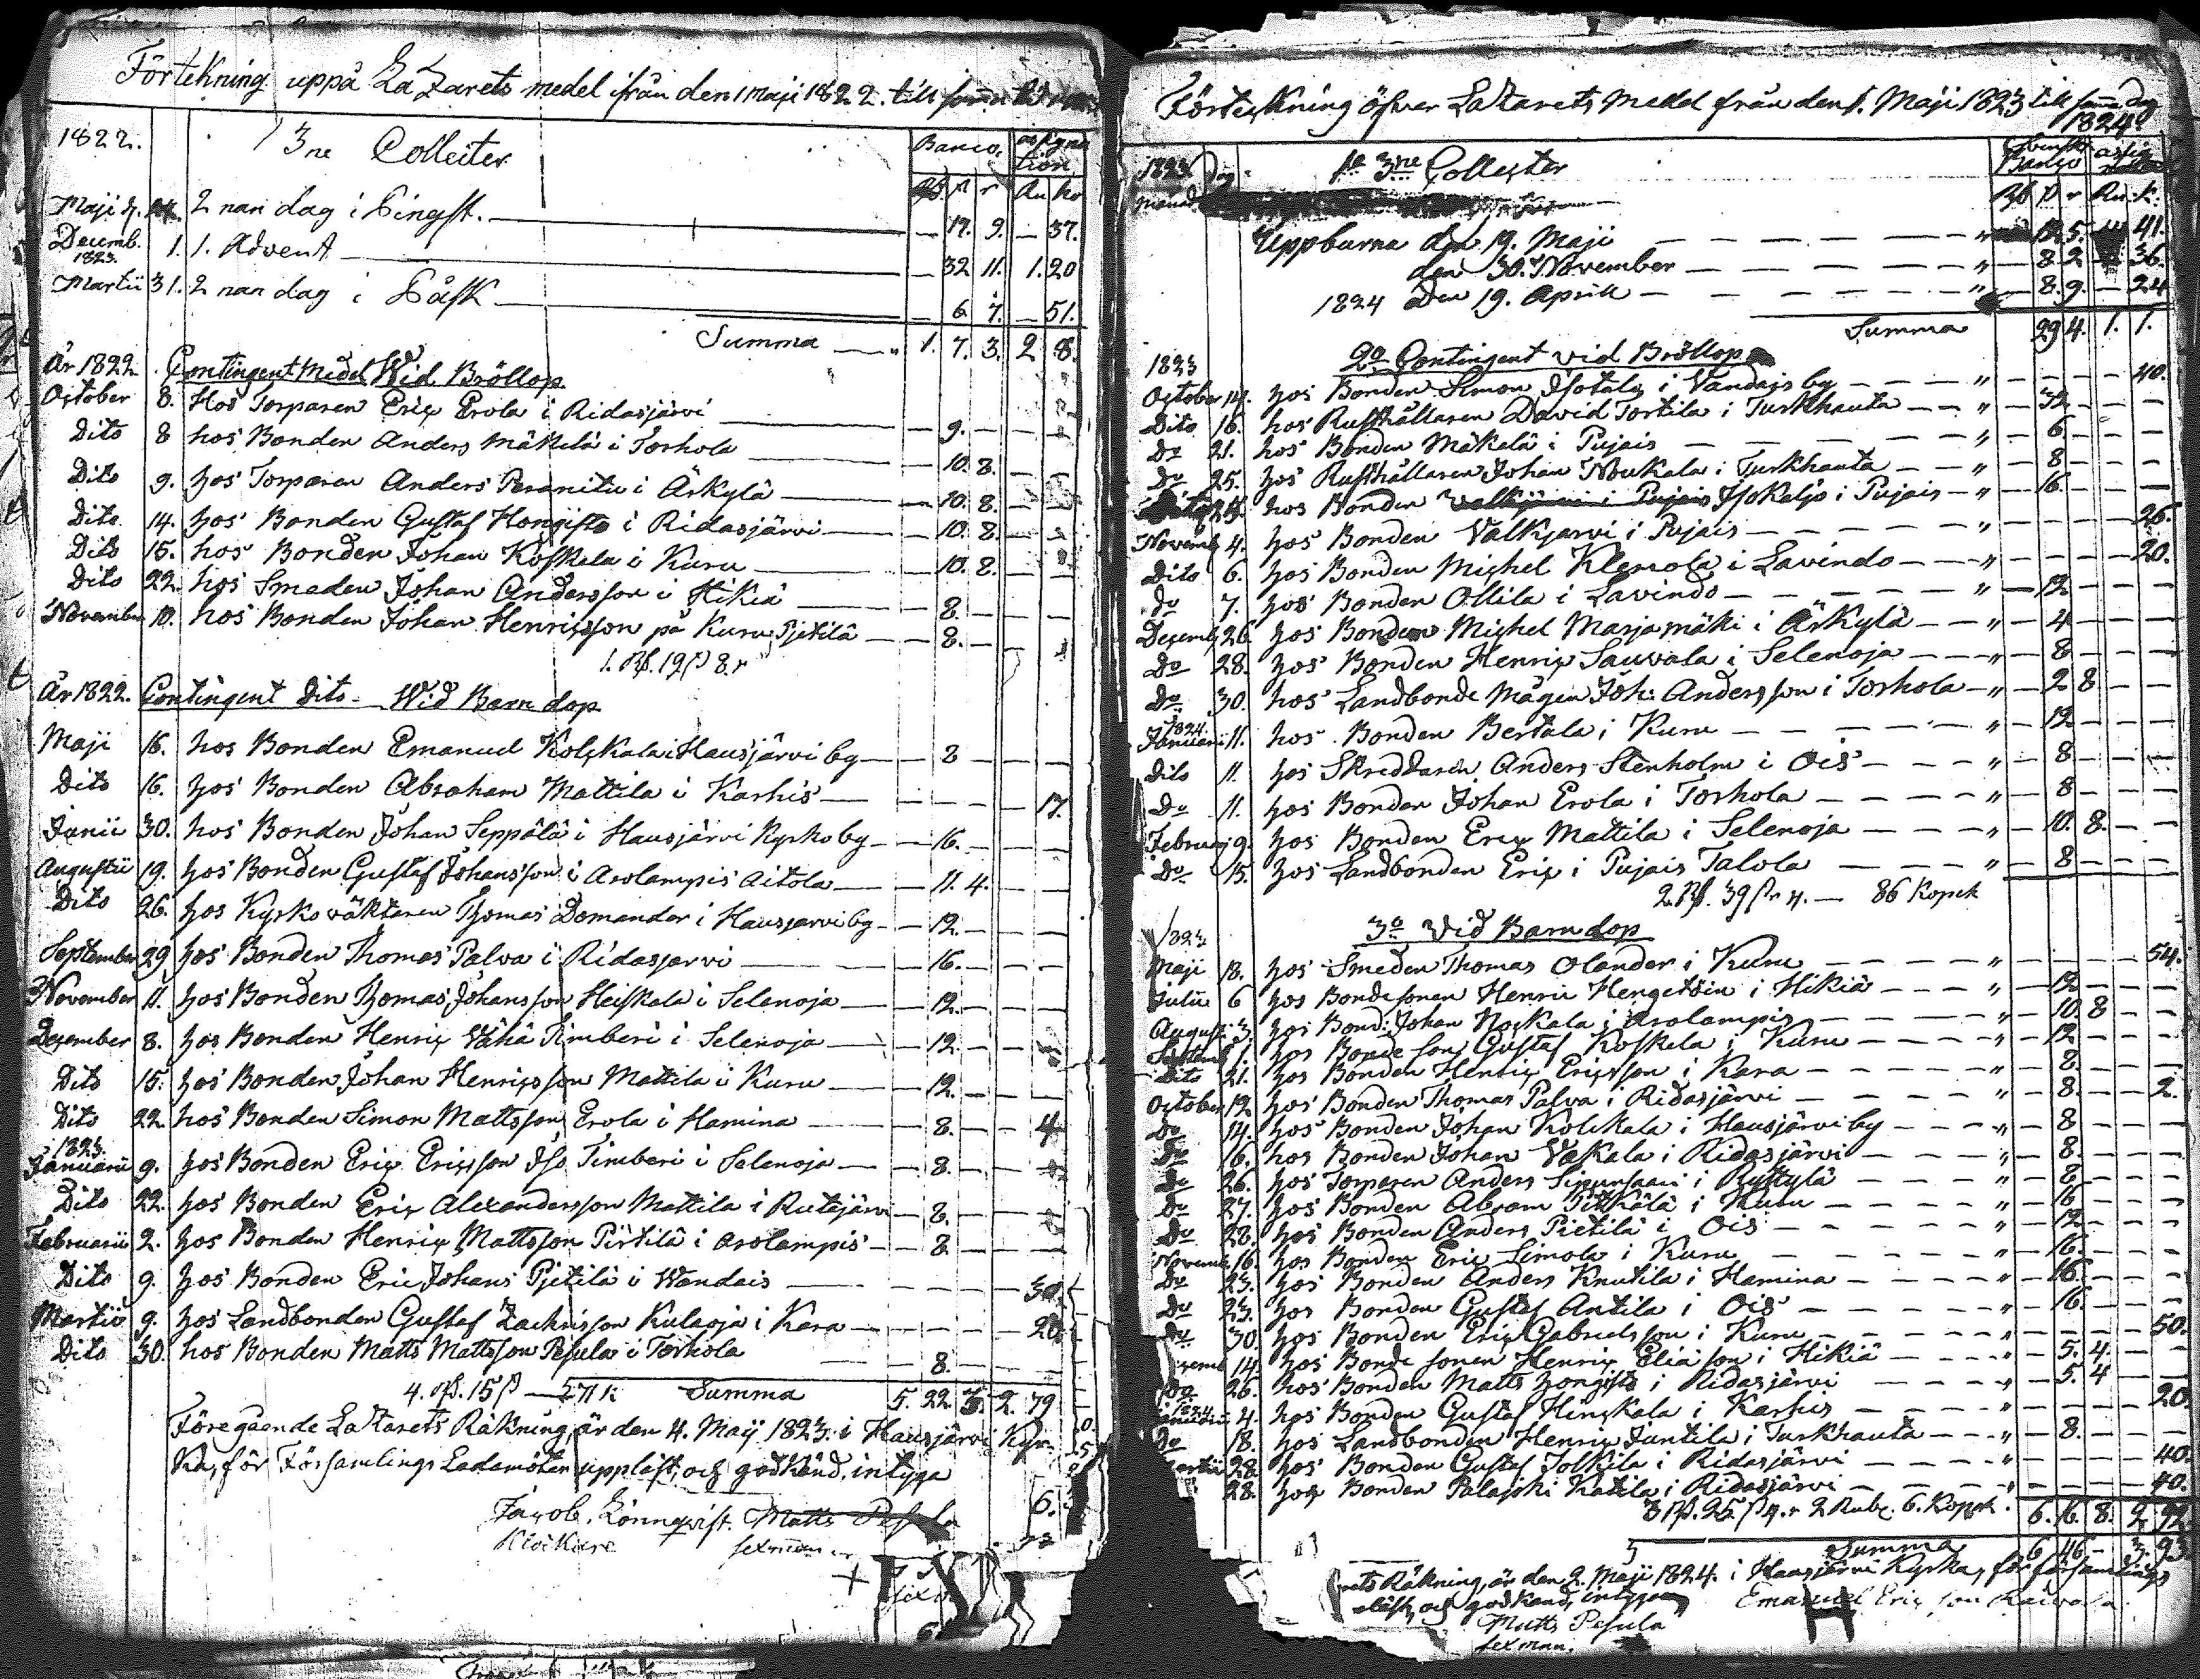 Förtekning uppå LaZarets medel ifrån den 1 Maji 1822. till
1822. 3ne Collecter Banco. assigna tion
Rß. ß r Ru ko
Maji d. 2 nan dag i Pingst. — 17. 9. — 37.
Decemb. 1. 1. Advent — 32 11. 1. 20
1823.
Martii 31. 2 nan dag i Påsk — 6. 7. — 51.
Summa — " 1. 7. 3. 2 8.
År 1822. Contingent Medel Wid Bröllop
October 8. Hos Torparen Eric Erola i Ridasjärvi — 9. — — —
Dito 8 hos Bonden Anders Mäkelä i Torhola — 10. 8. — —
Dito 9. hos Torparen Anders i Äskylä — 10. 8. — —
Dito 14. hos Bonden Gustaf Hongisto i Ridasjärvi — 10. 8. — —
Dito 15. hos Bonden Johan Koskela i Kuru — 10. 8. — —
Dito 22. hos Smeden Johan Andersson i Hikiä — 8. — — —
November 10. hos Bonden Johan Henricsson på Kuru Pjetilä — 8. — — —
1. Rß. 19 ß 8. r
År 1822. Contingent Dito - Wid Barn dop
Maji 16. hos Bonden Emanuel Kolckala i Hausjärvi by — 8 — — —
Dito 16. hos Bonden Abraham Mattila i Karhis — — — — 17.
Junii 30. hos Bonden Johan Seppälä i Hausjärvi Kyrko by — 16. — — —
Augustii 19. hos Bonden Gustaf Johansson i Arolampis Aitola — 11. 4. — —
Dito 26. hos Kyrko väktaren Thomas Domander i Hausjarvi by — 12. — — —
September 29 hos Bonden Thomas Palva i Ridasjarvi — 16. — — —
November 11. hos Bonden Thomas Johansson Heiskala i Selenoja — 12. — — —
December 8. hos Bonden Henric Vähä Timberi i Selenoja — 12. — — —
Dito 15. hos Bonden Johan Henricsson Mattila i Kuru — 12. — — —
Dito 22. hos Bonden Simon Mattsson Erola i Hamina — 8. — — 4
1823.
Januarii 9. hos Bonden Eric Ericsson Iso Timberi i Selenoja — 8. — — —
Dito 22. hos Bonden Eric Alexandersson Mattila i Rutajärvi — 8. — — —
Februarii 2. hos Bonden Henric Mattsson Pirtilä i Arolampis — 8. — — —
Dito 9. hos Bonden Eric Johans Pjetilä i Wandais — — — — 30.
Martii 9. hos Landbonden Gustaf Zachrisson Kulaoja i Kara — — — — 20.
Dito 30. hos Bonden Matts Mattsson Pesula i Torhola — 8. — — —
4. Rß. 15 ß — 71 k Summa 5. 22 3. 2. 79
Föregående LaZarets Räkning, är den 4. Maij 1823. i Hausjärvi Kyr-
ka, för Församlings Ledamöten uppläst, och godkänd, intyga
Jacob. Lönnqvist. Matts Pesula
Klåckare sexman
Förteckning öfver LaZarets Medel från den 1. Maji 1823 till samma dag
1824.
1823 Dag 1o 3ne Collecter Svensk Banco assig
månad Rß ß r Ru. k.
Uppburna den 19. Maji — 12. 5. 41.
den 30. November — 8. 2 — 36.
1824 Den 19. April — 8. 9. — 24
Summa 29 4. 1. 1.
1823 2o Contingent vid Bröllop
October 14. hos Bonden Simon Isotalo i Vandais by — — — — 40.
Dito 16. hos Rusthållaren David Tortila i Turkhauta — 32 — — —
Do 21. hos Bonden Mäkelä i Pujais — 6. — — —
Do 25. hos Rusthållaren Johan Noukala i Turkhauta — 8 — — —
Dito 28. hos Bonden Isokaljo i Pujais — 16. — — —
Novemb 4. hos Bonden Valkjarvi i Pujais — — — — 26.
Dito 6. hos Bonden Michel Klemola i Lavindo — — — — 20.
do 7. hos Bonden Ollila i Lavindo — 12 — — —
Decemb 26 hos Bonden Michel Marjamäki i Äskylä — 4 — — —
Do 28. hos Bonden Henric Sauvala i Selenoja — 8 — — —
Do 30. hos Landbonde Mågen Joh: Andersson i Torhola — 2 8 — —
1824.
Januarii 11. hos Bonden Bertala i Kuru — 12 — — —
Dito 11. hos Skreddaren Anders Stenholm i Ois — 8 — — —
Do 11. hos Bonden Johan Erola i Torhola — 8 — — —
Februarii 9. hos Bonden Eric Mattila i Selenoja — 10. 8. — —
Do 15. hos Landbonden Eric i Pujais Talola — 8 — — —
2 Rß. 39 ß r 4. — 86 Kopek
1823 3o Vid Barn dop
Maji 18. hos Smeden Thomas Olander i Kuru — — — — 54.
Julii 6 hos Bondesonen Henric Hengetöin i Hikiä — 12 — — —
August. 3. hos Bond: Johan Nockala i Arolampis — 10. 8 — —
Septemb 1. hos Bonde son Gustaf Koskela i Kuru — 12 — — —
Dito 21. hos Bonden Henric Ericsson i Kara — 8. — — —
October 12. hos Bonden Thomas Palva i Ridasjärvi — 8. — — 2.
Do 14. hos Bonden Johan Kolckala i Hausjärvi by — 8 — — —
Do 16. hos Bonden Johan Vakala i Ridasjärvi — 8. — — —
Do 26. hos Torparen Anders i Ryttylä — 8 — — —
Do 27. hos Bonden Abram Pitkälä i Kuru — 16 — — —
Do 28. hos Bonden Anders Pietilä i Ois — 12 — — —
Novemb. 16. hos Bonden Eric Simola i Kuru — 16. — — —
Do 23. hos Bonden Anders Knutila i Hamina — 16. — — —
Do 23. hos Bonden Gustaf Antila i Ois — 16. — — —
Do 30. hos Bonden Eric Gabrielsson i Kuru — — — — 50.
14. hos Bonde sonen Henric Eliasson i Hikiä — 5. 4. — —
Do 26. hos Bonden Matts Hongisto i Ridasjärvi — 5. 4 — —
1824 4. hos Bonden Gustaf Hinckala i Karhis — — — — 20
Do 18. hos Landbonden Henric Juntila i Turkhauta — 8. — — —
28. hos Bonden Gustaf Jolkila i Ridasjärvi — — — — 40.
28. hos Bonden Palajoki Katila i Ridasjärvi — — — — 40.
3 Rß. 25. ß 4. r 2 Rub. 6. Kopek. 6. 16. 8. 2 92
Summa 6 46 — 3. 93
rets Räkning, är den 9. Maji 1824. i Hausjärvi Kyrka, för församlings
läst, och godkänd, intyga Emanuel Ericsson
Matts Pesula
sexman.